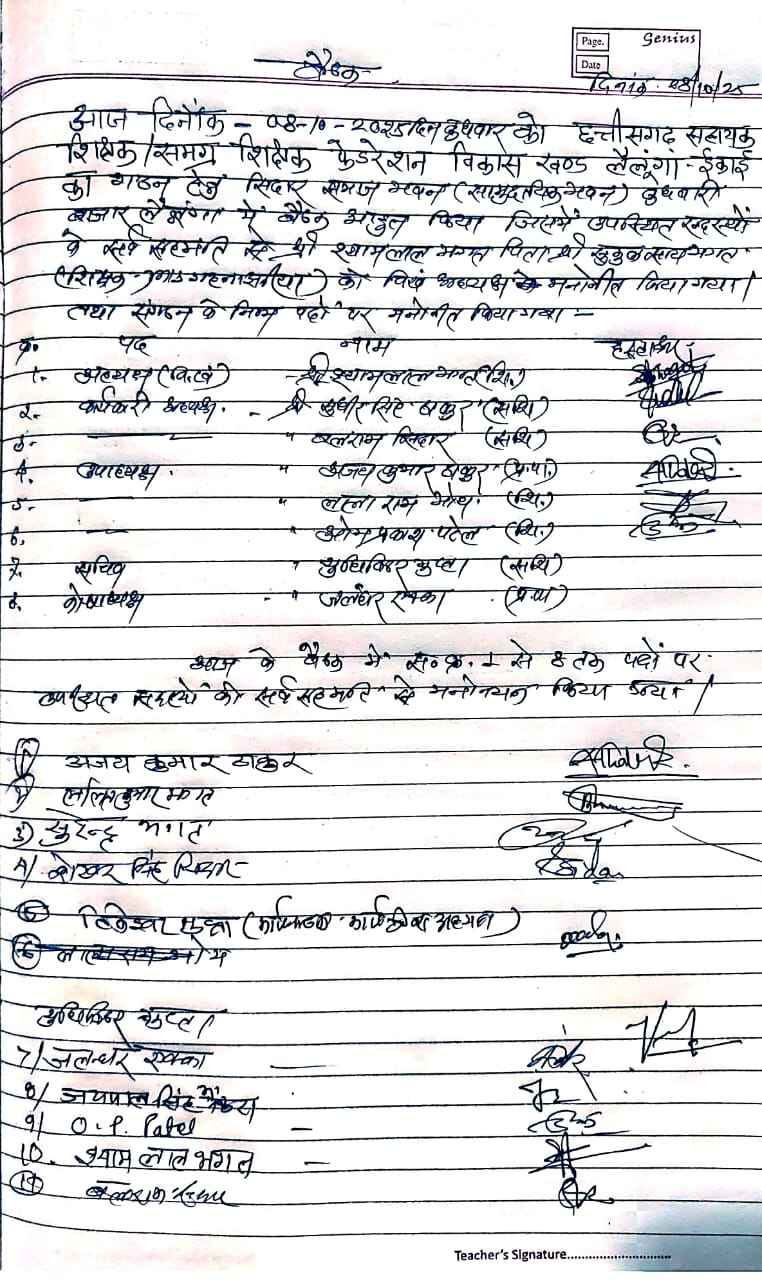 Page. Genius
Date
बैठक
दिनांक. 08/10/25
आज दिनाँक - 08-10-2025 दिन बुधवार को छत्तीसगढ़ सहायक
शिक्षक/समग्र शिक्षक फेडरेशन विकास खण्ड लैलूंगा ईकाई
का गठन हेतु सिदार समाज भवन (सामुदायिक भवन) बुधवारी
बाजार लैलूंगा में बैठक आहुत किया जिसमें उपस्थित सदस्यों
के सर्व सहमति से श्री श्यामलाल भगत पिता श्री भगत
(शिक्षक) को वि.खं अध्यक्ष मनोनीत किया गया।
तथा संगठन के निम्न पदों पर मनोनीत किया गया -
क्र. पद नाम हस्ताक्षर
1. अध्यक्ष (वि.खं) - श्री श्यामलाल भगत (शि.)
2. कार्यकारी अध्यक्ष. - श्री सुधीर सिंह ठाकुर (सशि)
3. — " बलराम सिदार (सशि)
4. उपाध्यक्ष. " अजय कुमार ठाकुर (प्र.पा.)
5. — " लाला राम भोय. (शि.)
6. — " ओम प्रकाश पटेल (शि.)
7. सचिव " युधिष्ठिर गुप्ता (सशि)
8. कोषाध्यक्ष - " जलंधर एक्का (प्र.पा)
आज के बैठक में स.क्र. 1 से 8 तक पदों पर
उपस्थित सदस्यों की सर्व सहमति से मनोनयन किया गया।
1) अजय कुमार ठाकुर
2) ललित कुमार भगत
3) सुरेन्द्र भगत
4/ शेखर सिंह सिदार
5) गुप्ता (कार्यकारी अध्यक्ष)
6) लाला राम भोय
युधिष्ठिर गुप्ता
7/ जलन्धर एक्का —
8/ जयपाल सिंह
9) O.P. Patel —
10. श्याम लाल भगत —
11) बलराम सिदार
Teacher's Signature..............................